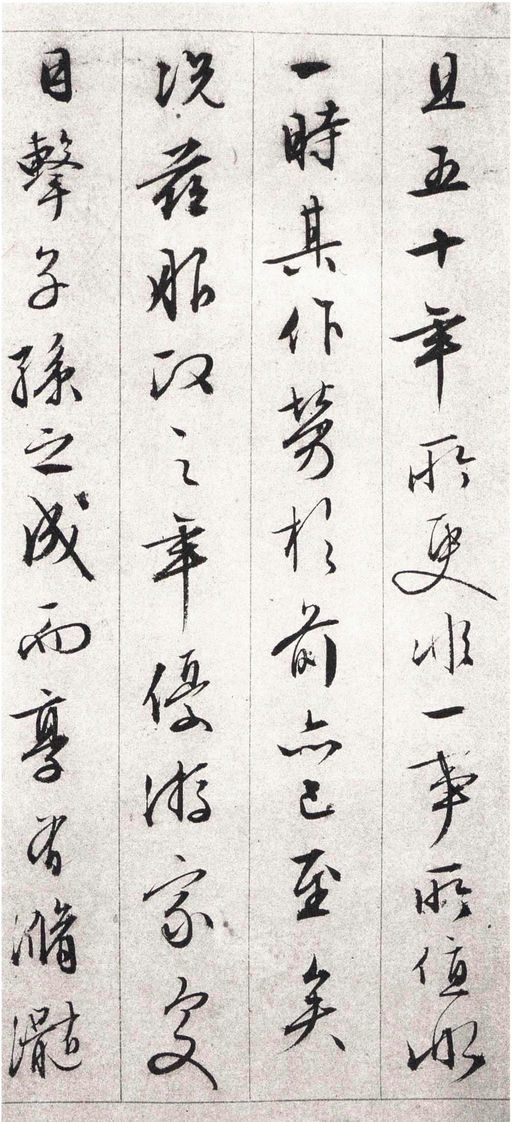 且五十年所更非一事所值非
一時其作勞於前亦已至矣
況茲服政之年優游家食
目擊子孫之成而享有滫瀡